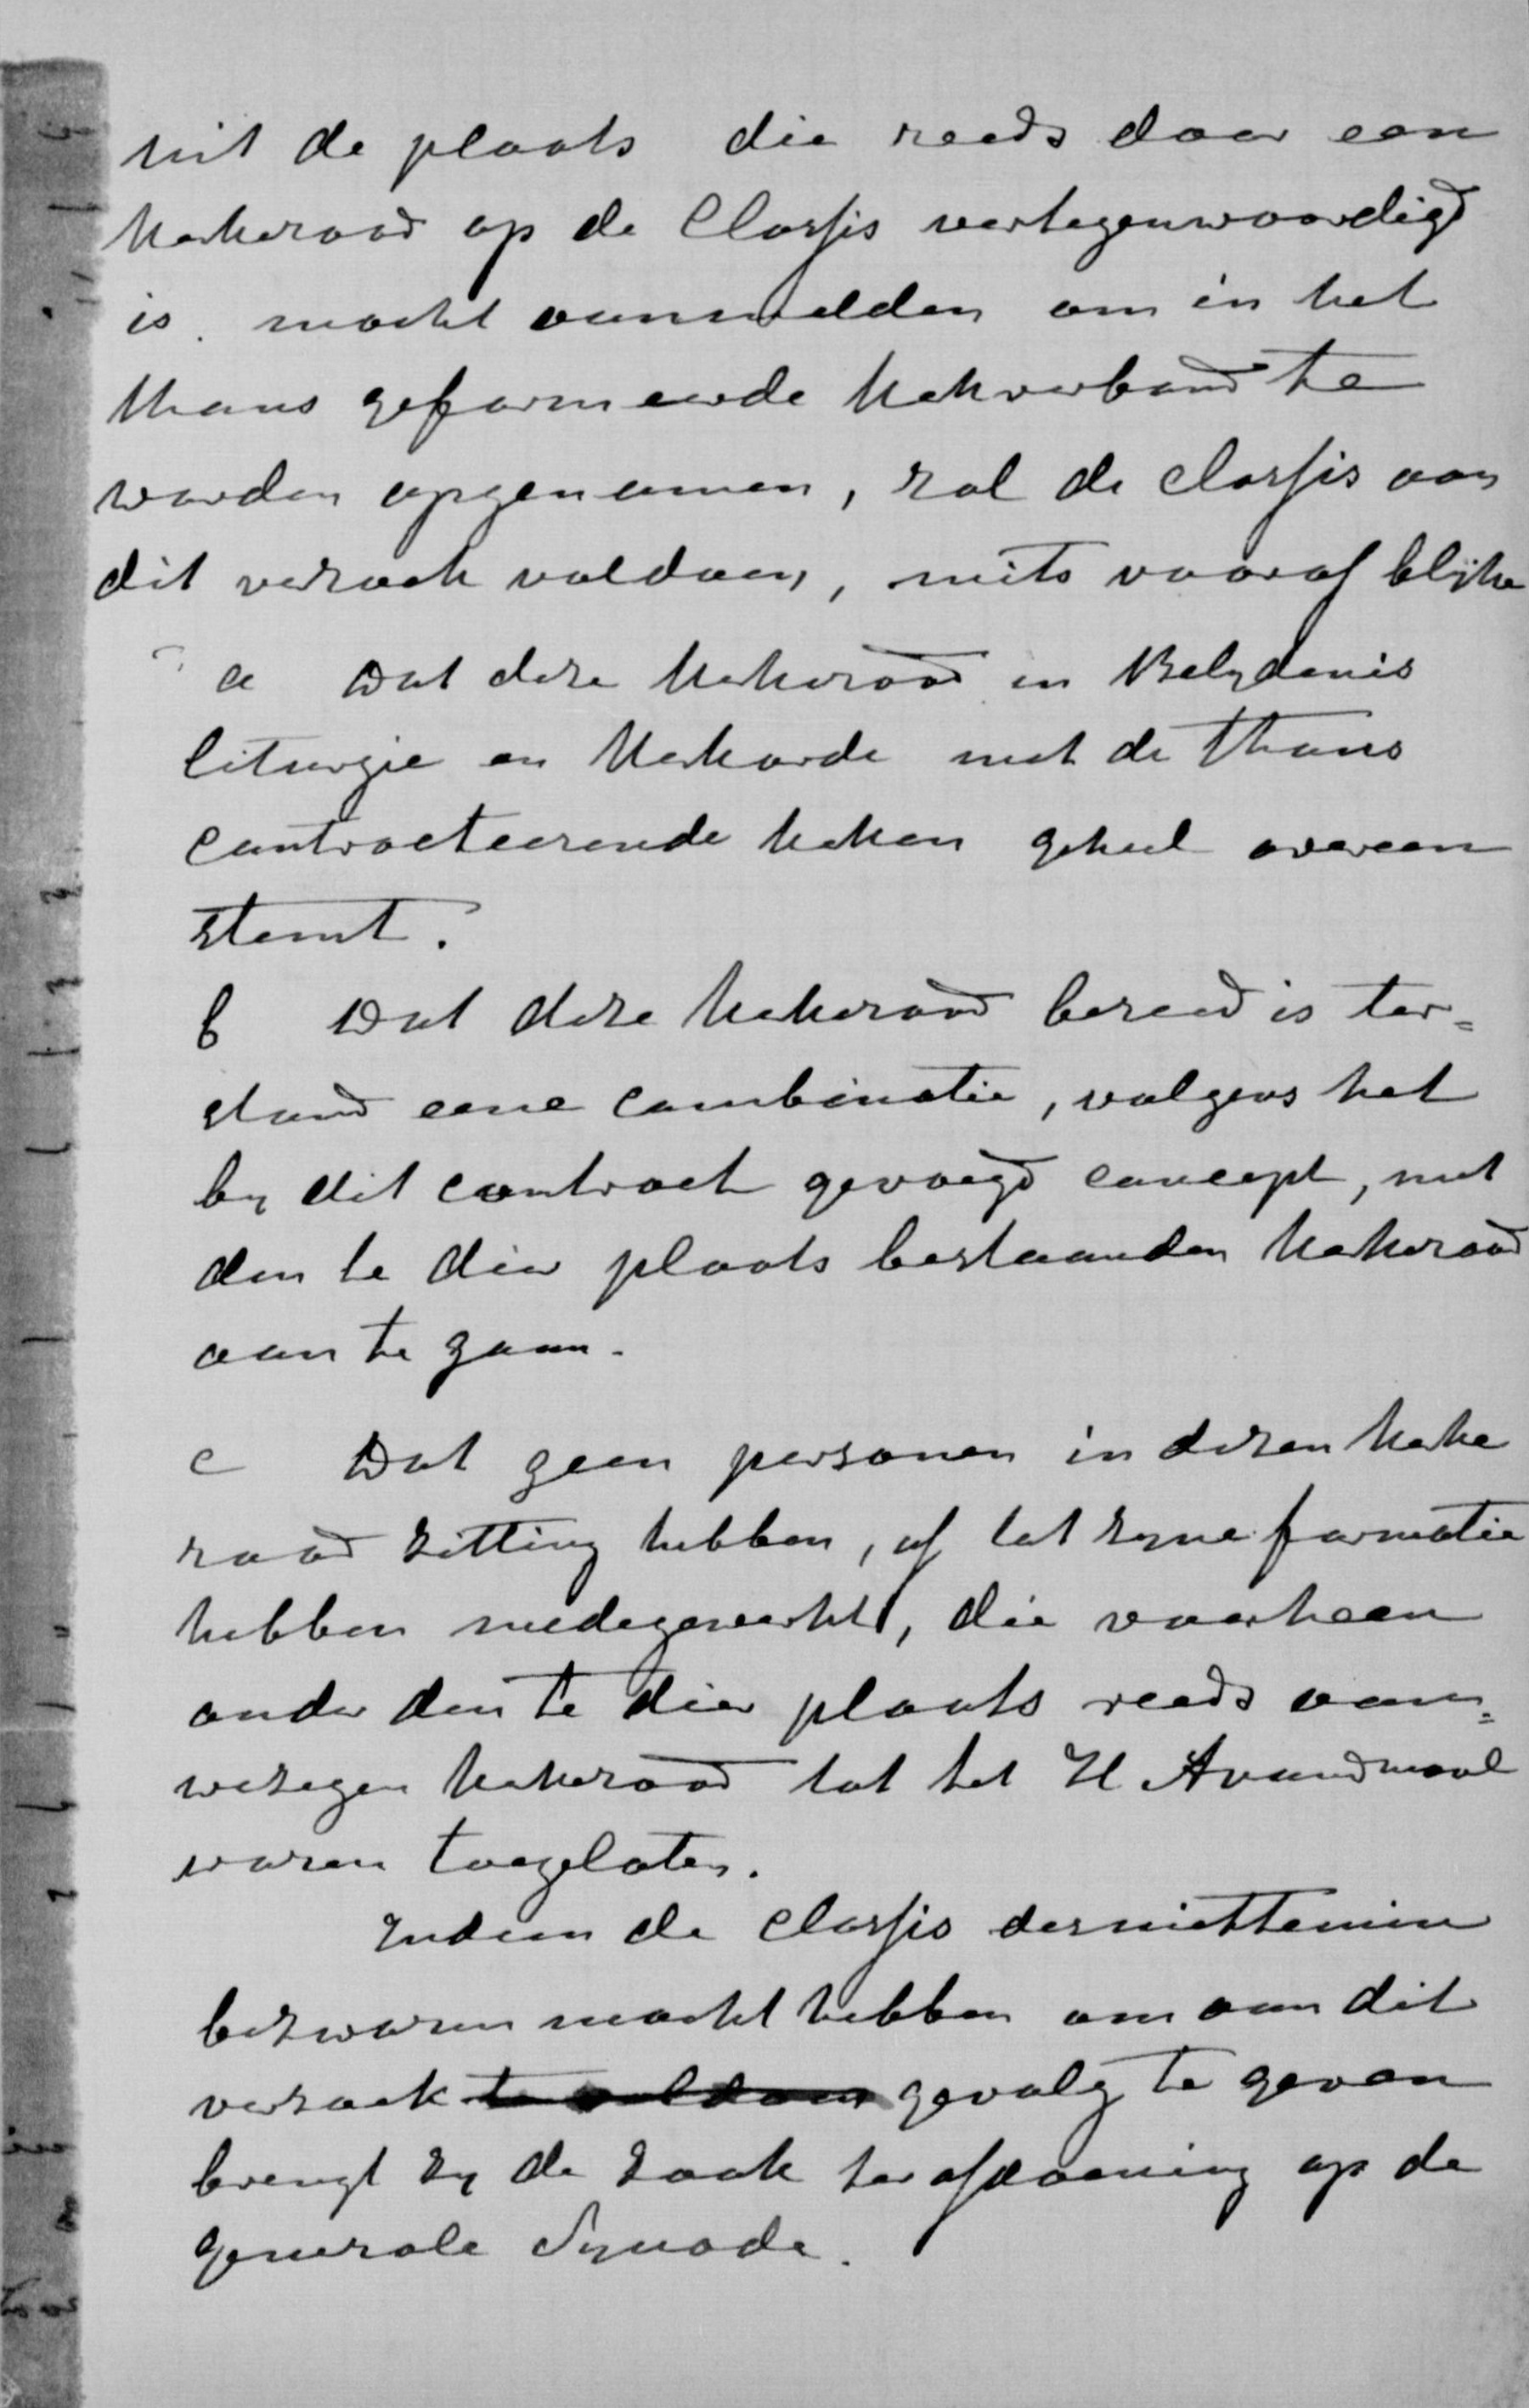 uit de plaats die reeds door een
Kerkeraad op de Classis vertegenwoordigd
is. mocht aanmelden om in het
thans geformeerde Kerkverband te
worden opgenomen, zal de classis aan
dit verzoek voldoen, mits vooraf blijke
a Dat deze Kerkeraad in Belydenis
liturgie en Kerkorde met de thans
contracteerende kerken geheel overeen
stemt.
b Dat deze Kerkeraad bereid is ter=
stond eene combinatie, volgens het
by dit contract gevoegd concept, met
den te dier plaats bestaanden Kerkeraad
aan te gaan.
c Dat geen personen in dezen Kerke
raad zitting hebben, of tot zyne formatie
hebben medegewerkt, die voorheen
onder den te dier plaats reeds aan=
wezigen Kerkeraad tot het H Avondmaal
waren toegelaten.
Indien de classis desniettemin
bezwaren mocht hebben om aan dit
verzoek te voldoen gevolg te geven
brengt zy de zaak ter afdoening op de
generale Synode.